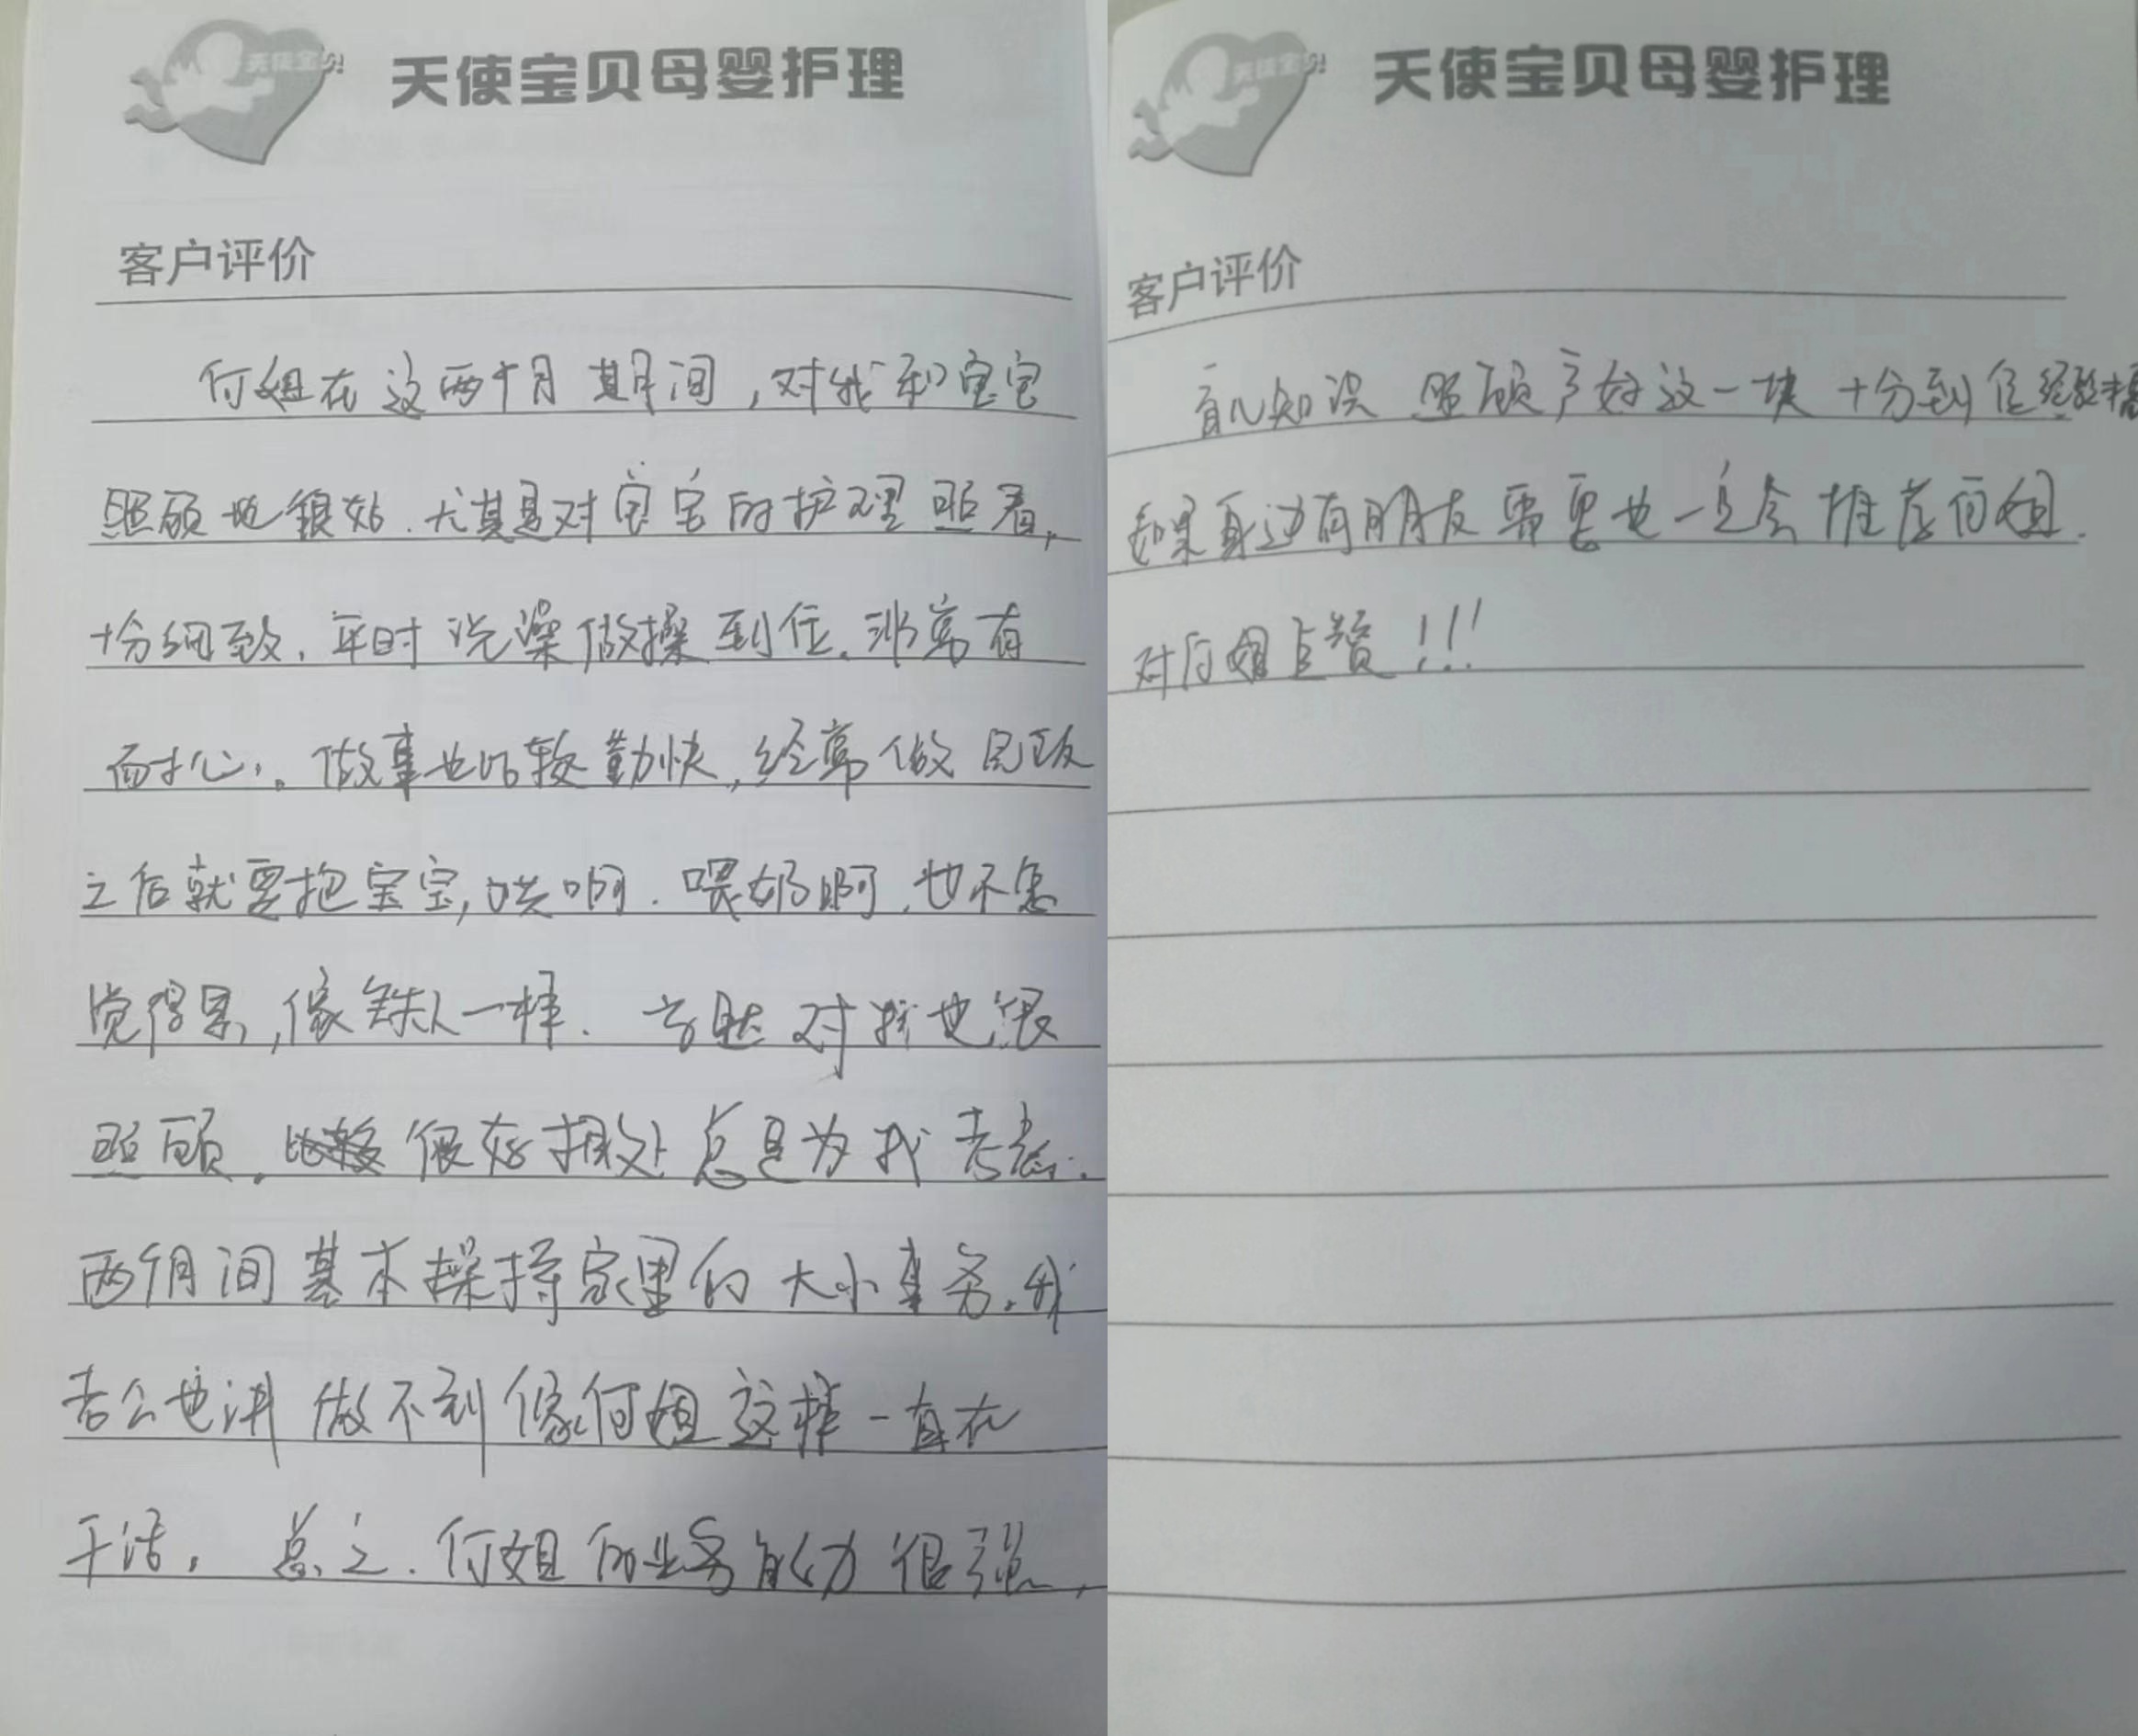 天使宝贝!
天使宝贝母婴护理
客户评价
何姐在这两个月期间，对我和宝宝
照顾地很好.尤其是对宝宝的护理照看，
十分细致，平时洗澡做操到位。非常有
耐心。做事也比较勤快，经常做完饭
之后就要抱宝宝，哄啊.喂奶啊，也不怎
觉得累，像铁人一样.当然对我也很
照顾。很好相处总是为我考虑.
两个月间基本操持家里的大小事务.我
老公也讲做不到像何姐这样一直在
干活。总之.何姐的业务能力很强，
天使宝贝!
天使宝贝母婴护理
客户评价
育儿知识 照顾产妇这一块十分到位
如果身边有朋友需要也一定会推荐何姐.
对何姐点赞!!!